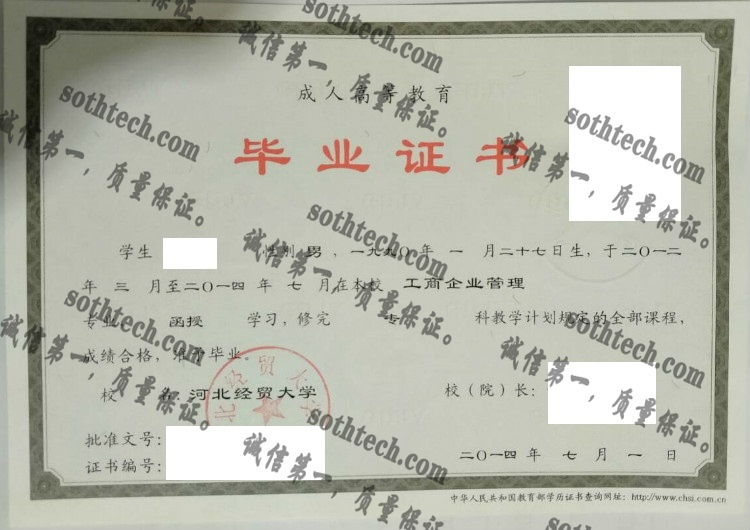 成人高等教育
毕业证书
学生 性别 男，一九九〇年 一 月二十七日生，于二〇一二
年 三 月至二〇一四年 七 月在本校 工商企业管理
专业 函授 学习，修完 专 科教学计划规定的全部课程，
成绩合格，准予毕业。
校 名：河北经贸大学 校（院）长：
批准文号：
证书编号： 二〇一四年 七 月 一 日
中华人民共和国教育部学历证书查询网址：http://www.chsi.com.cn
sothtech.com
诚信第一，质量保证。
sothtech.com
诚信第一，质量保证。
sothtech.com
诚信第一，质量保证。
sothtech.com
诚信第一，质量保证。
sothtech.com
诚信第一，质量保证。
sothtech.com
诚信第一，质量保证。
sothtech.com
诚信第一，质量保证。
sothtech.com